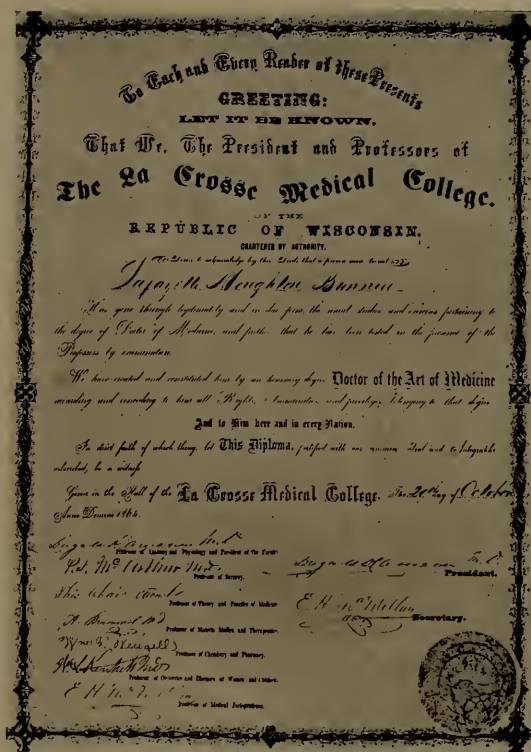 To Each and Every Reader of these Presents
GREETING:
LET IT BE KNOWN,
That We, The President and Professors of
The La Crosse Medical College.
OF THE
REPUBLIC OF WISCONSIN.
CHARTERED BY AUTHORITY.
to acknowledge by this that a
Lafayette Houghton Bunnell
Has gone through legitimately and in due form, the usual studies and exercises pertaining to
the degree of Doctor of Medicine, and further that he has been tested in the presence of the
Professors by examination.
We have created and constituted him by an honorary degree Doctor of the Art of Medicine
according and conceding to him all Rights, and privileges belonging to that degree
And to Him here and in every Nation.
In strict faith of which thing, let This Diploma, fortified with our common Seal and
, be a witness
Given in the Hall of the La Crosse Medical College. The day of October
Anno Domini 1864.
M.D.
Professor of Anatomy and Physiology and President of the Faculty
P.S. McArthur M.D.
Professor of Surgery.
M.D.
President.
This Chair Vacant
Professor of Theory and Practice of Medicine
Professor of Materia Medica and Therapeutics
E. H.
Secretary.
Professor of Chemistry and Pharmacy.
Professor of Obstetrics and Diseases of Women and Children.
E H
Professor of Medical Jurisprudence.